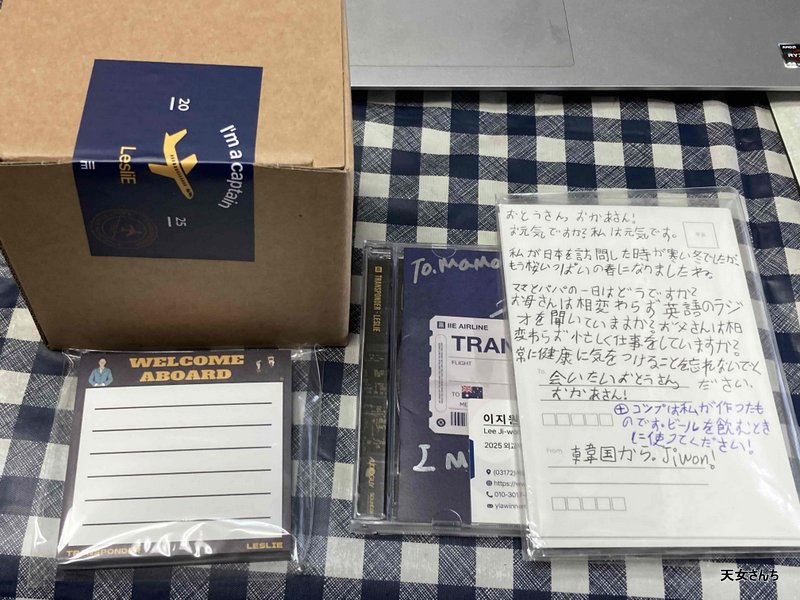 I'm a captain
20
25
LesliE
WELCOME
ABOARD
TRANSPONDER
LESLIE
TRANSPONDER - LESLIE
To. MoMo
IIE AIRLINE
TRAN
FLIGHT
TO
ME
I M
이지원
Lee Ji-wo
2025 외교
(03172)
https://ww
010-301
yiawinne
おとうさん。おかあさん!
お元気ですか?私は元気です。
私が日本を訪問した時が寒い冬でしたが、
もう桜いっぱいの春になりましたね。
ママとパパの一日はどうですか?
お母さんは相変わらず英語のラジ
オを聞いていますか?お父さんは相
変わらお忙しく仕事をしていますか?
常に健康に気をつけることを忘れないでく
ださい。
To.
会いたいおとうさん
おかあさん!
⊕コップは私が作ったも
のです。ビールを飲むとき
に使ってください!
From
韓国から。Jiwon!
AMD
RYZ
天女さんち